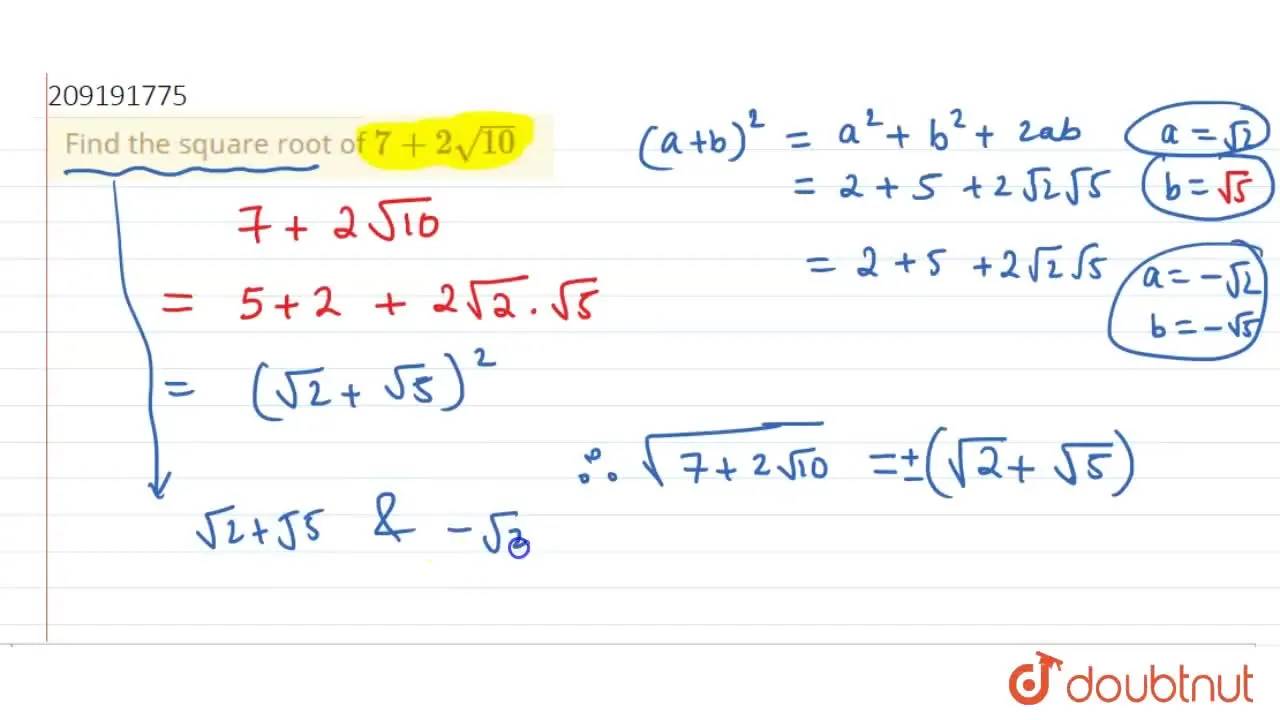 209191775
Find the square root of 7 + 2√10
7 + 2√10
= 5 + 2 + 2√2 . √5
= (√2 + √5)²
√2 + √5 & -√2
(a+b)² = a² + b² + 2ab
= 2 + 5 + 2√2√5
= 2 + 5 + 2√2√5
a = √2
b = √5
a = -√2
b = -√5
∴ √(7 + 2√10) = ±(√2 + √5)
doubtnut